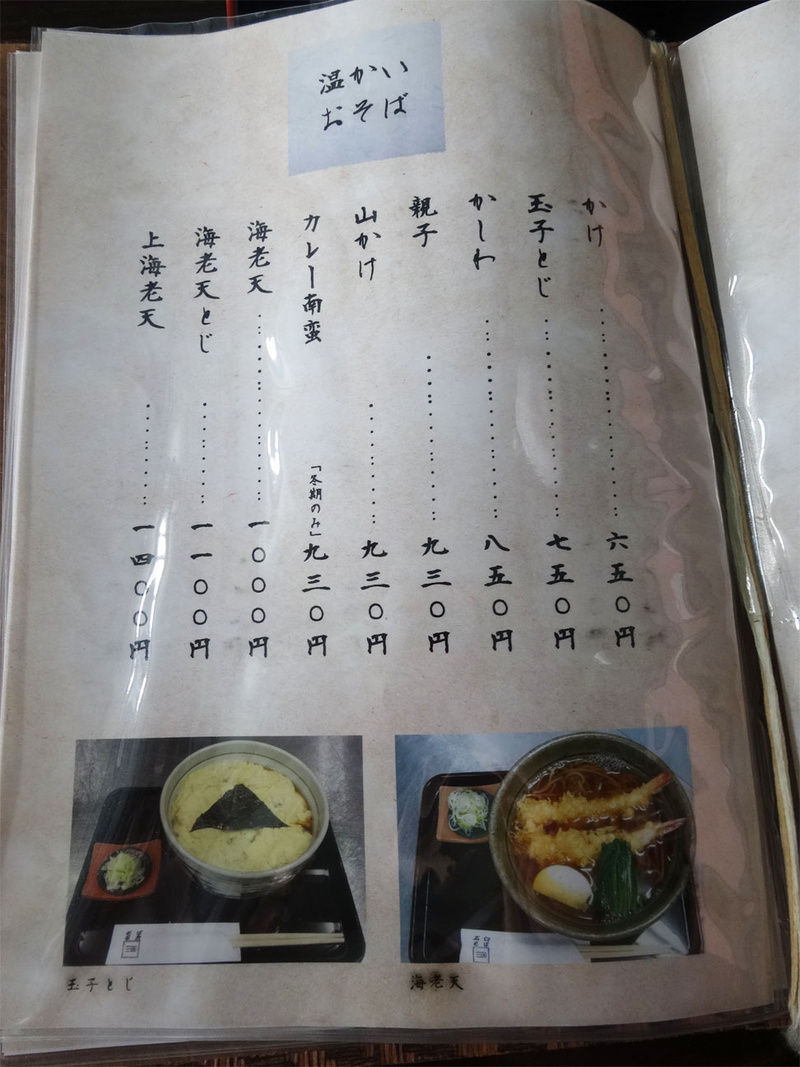 温かい
おそば
かけ…………六五〇円
玉子とじ…………七五〇円
かしわ…………八五〇円
親子…………九三〇円
山かけ…………九三〇円
カレー南蛮「冬期のみ」九三〇円
海老天…………一〇〇〇円
海老天とじ…………一一〇〇円
上海老天…………一四〇〇円
玉子とじ
海老天